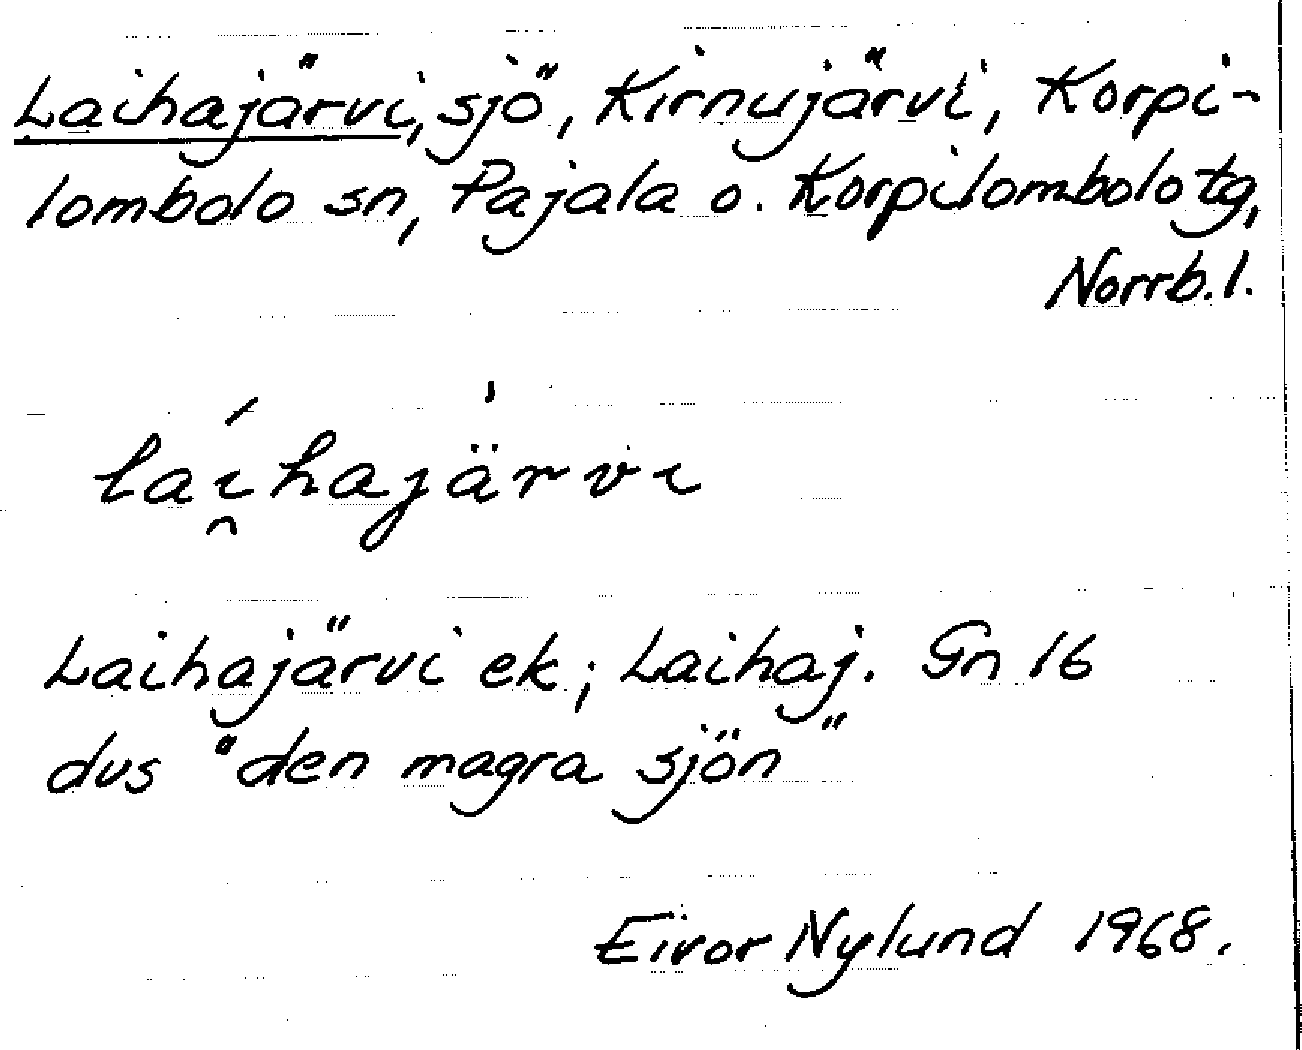 Laihajärvi, sjö, Kirnujärvi, Korpi-
lombolo sn, Pajala o. Korpilombolo tg,
Norrb. l.
lái̯hajär̍vi
Laihajärvi ek; Laihaj. Gn 16
dvs "den magra sjön"
Eivor Nylund 1968.